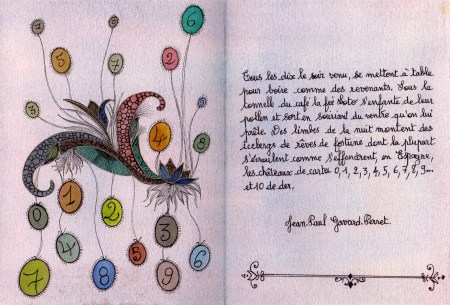 6
5
7
2
3
4
8
0
1
2
3
4
5
6
7
8
9
Tous les dix le soir venu, se mettent à table
pour boire comme des revenants. Sous la
tonnell du café la fée Loto s'enfante de leur
pollen et sort en souriant du ventre qu'on lui
prête. Des limbes de la nuit montent des
Icebergs de rêves de fortune dont la plupart
s'écroulent comme s'effondrent, en Espagne,
les châteaux de cartes 0, 1, 2, 3, 4, 5, 6, 7, 8, 9...
et 10 de der.
Jean-Paul Gavard-Perret.